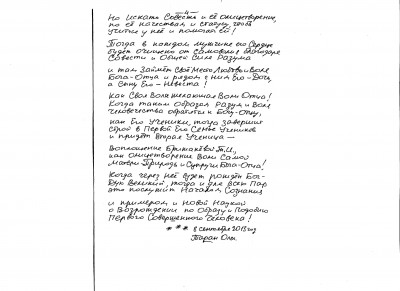 - 4 -
Но искать Совесть и её олицетворение,
по её качествам и статусу, чтоб
учится у неё и помогать ей!
Тогда в каждом мужчине его Сердце
будет очищено от самоволия благодаря
Совести и Общей Силе Разума
и там Займёт Своё Место Любовь и Воля
Бога-Отца и рядом с ним Его Дочь,
а Сыну Его - Невеста!
Как Своя Воля желающая Воли Отца!
Когда таким Образом Разум и Воля
Человечества обратятся к Богу-Отцу,
как Его Ученики, тогда завершит
строй в Первой Его Семье Учеников
и придёт Вторая Ученица -
Воплощение
как олицетворение Воли Самой
Матери Природы и Супруги Бога-Отца!
Когда через неё будет пройден Бог-
Дух Великий, тогда и для всех Пар
это послужит Началом Сознания
и примером и Новой Наукой
о Возрождении по Образу и Подобию
Первого Совершенного Человека!
* * * 8 сентября 2013 год
Таран Оль.